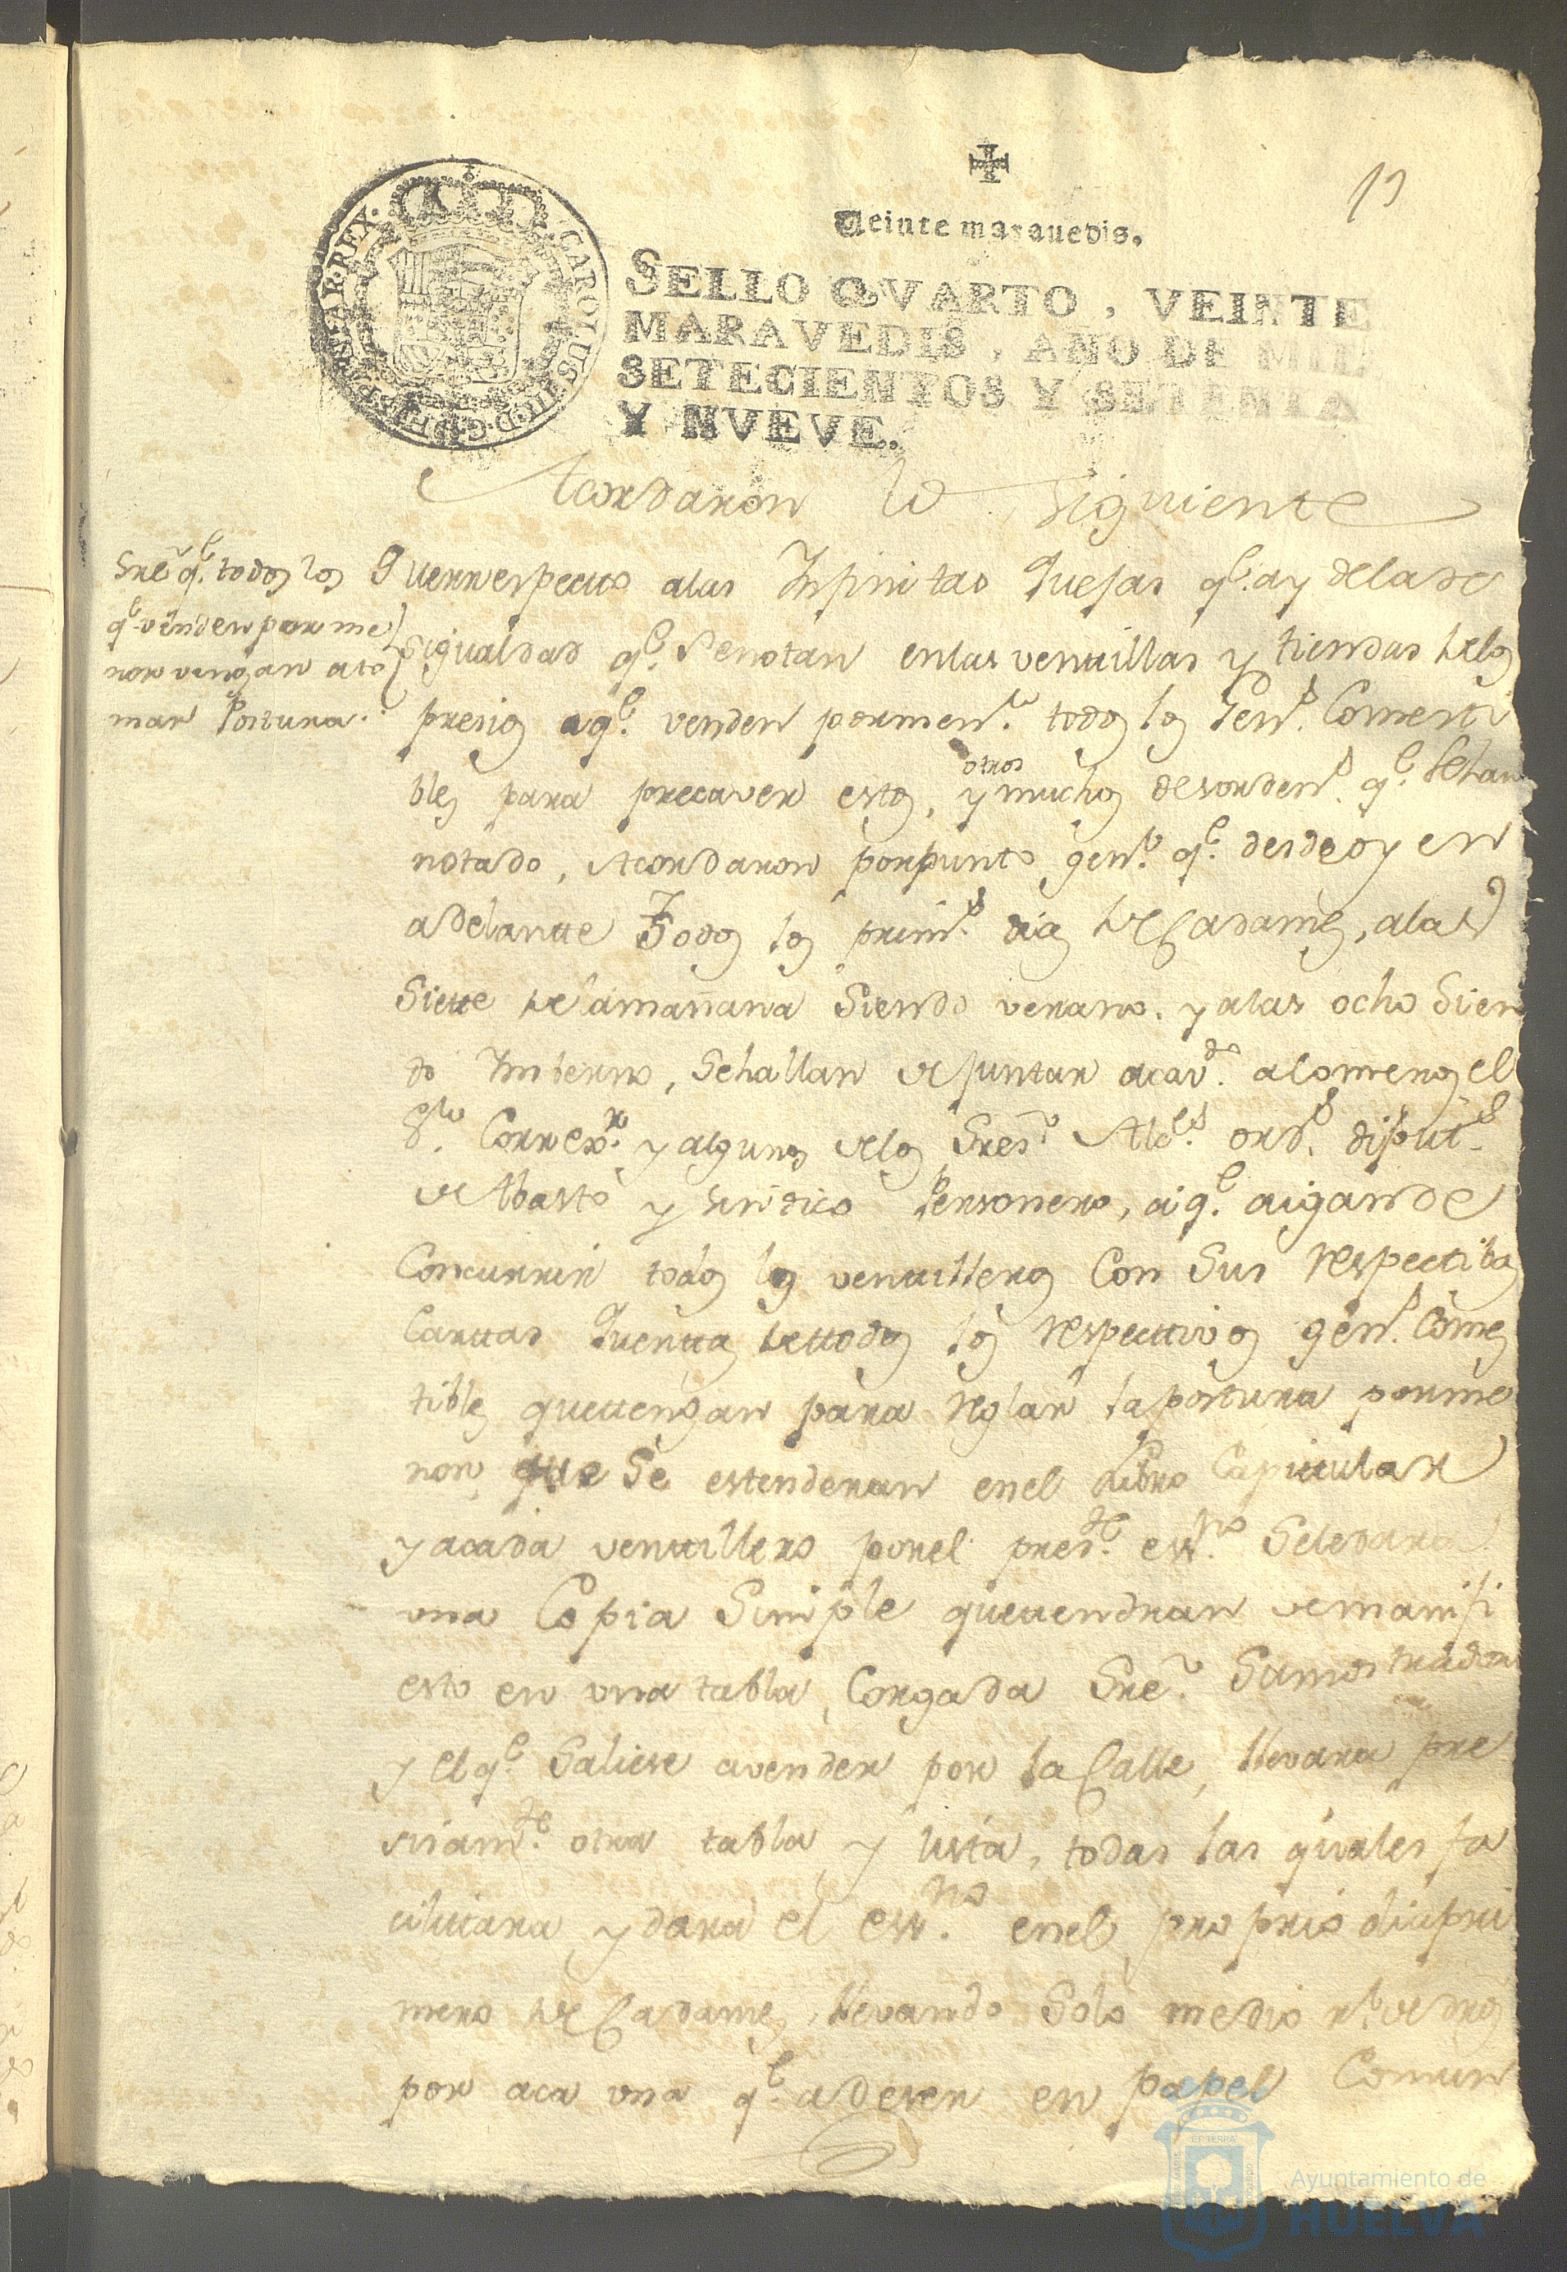 13
Veinte maravedis.
SELLO QVARTO, VEINTE
MARAVEDIS, AÑO DE MIL
SETECIENTOS Y SETENTA
Y NVEVE.
CAROLUS III D.G. HISPANIAR. REX.
Acordaron lo Siguiente
Sre q.e todos los
q.e venden por me
nor vengan a to
mar Postura.
Que respecto a las Infinitas Quejas q.e ay de la de
sigualdad q.e Se notan en las ventillas y tiendas de los
presios a q.e venden por men.r todos los Gen.s Comesti
bles para precaver estos, y otros muchos desorden.s q.e Se han
notado, Acordaron por punto gen.l q.e desde oy en
adelante Todos los prim.s dias de Cada mes, a las
Siette de la mañana Siendo verano, y a las ocho Sien
do Imbierno, Se hallan de juntar a cav.do a lo menos el
S.or Correx.r y algunos de los Sres. Alc.es ord.s diput.s
de Abasto y Sindico Personero, a q.e aigan de
Concurrir todos los ventilleros Con Sus respectibas
Carttas Quentas de ttodos los respecttivos gen.s Comes
tibles que vengan para reglar la postura por me
nor que Se estenderan en el Libro Capittular
y a cada ventillero por el pres.te ess.no Se le dara
una Copia Simple que tendran de manifi
esto en una tabla, Colgada Sre. Su mostrador
y el q.e Saliese a vender por la Calle, llevara pre
sisam.te otra tabla y lista, todas las quales fa
cilitara y dara el ess.no en el proprio dia pri
mero de Cada mes, llevando Solo medio r.l de dros
por aca una q.e a de ser en papel Comun
ET TERRAE
Ayuntamiento de
HUELVA